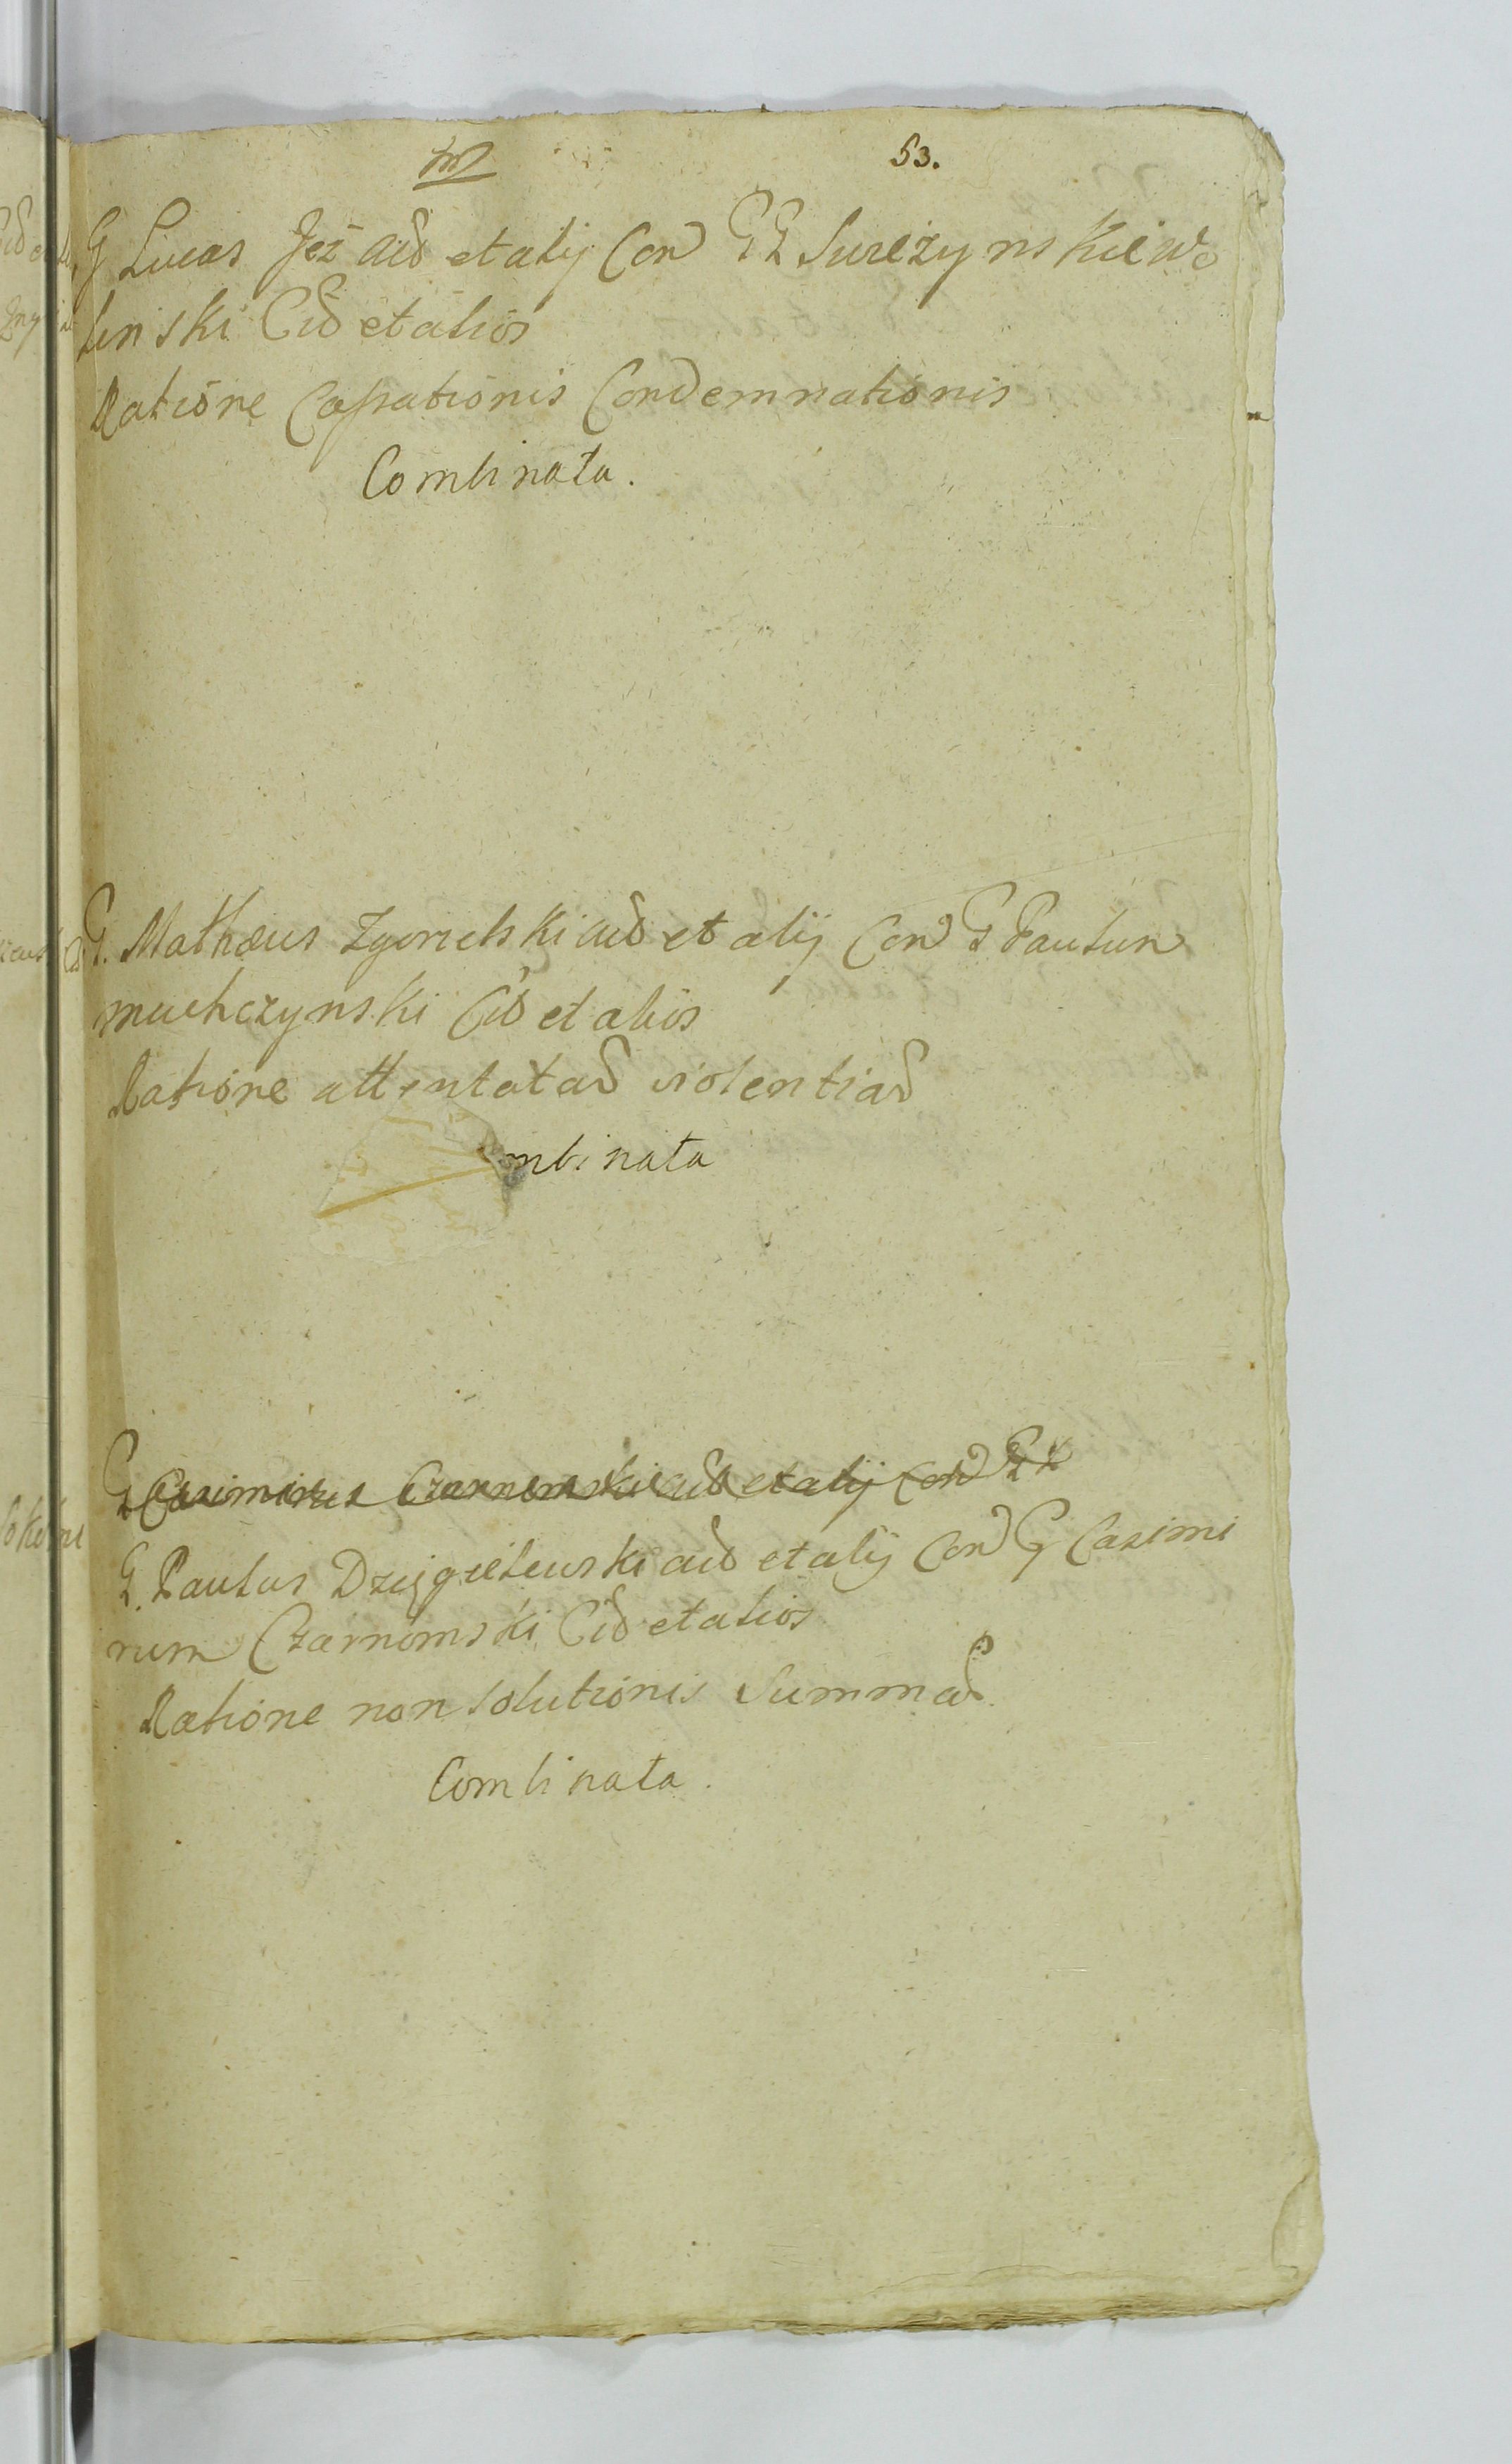 53.
G Lucas Jeż aud et alij Con GG Sureżynski e Wo
linski Cid et alios
Ratione Cassationis Condemnationis
Combinata.
G. Mathæus Zgorielski aud et alij Con G Paulum
muchczynski Cid et alios
Ratione attentatad violentiad
mbinata
G Casimirus Czarnomski aud et alij Con GG
G. Paulus Dzięgielewski aud et alij Con G Casimi
rum Czarnomski Cid et alios
Ratione non Solutionis Summad.
Combinata.